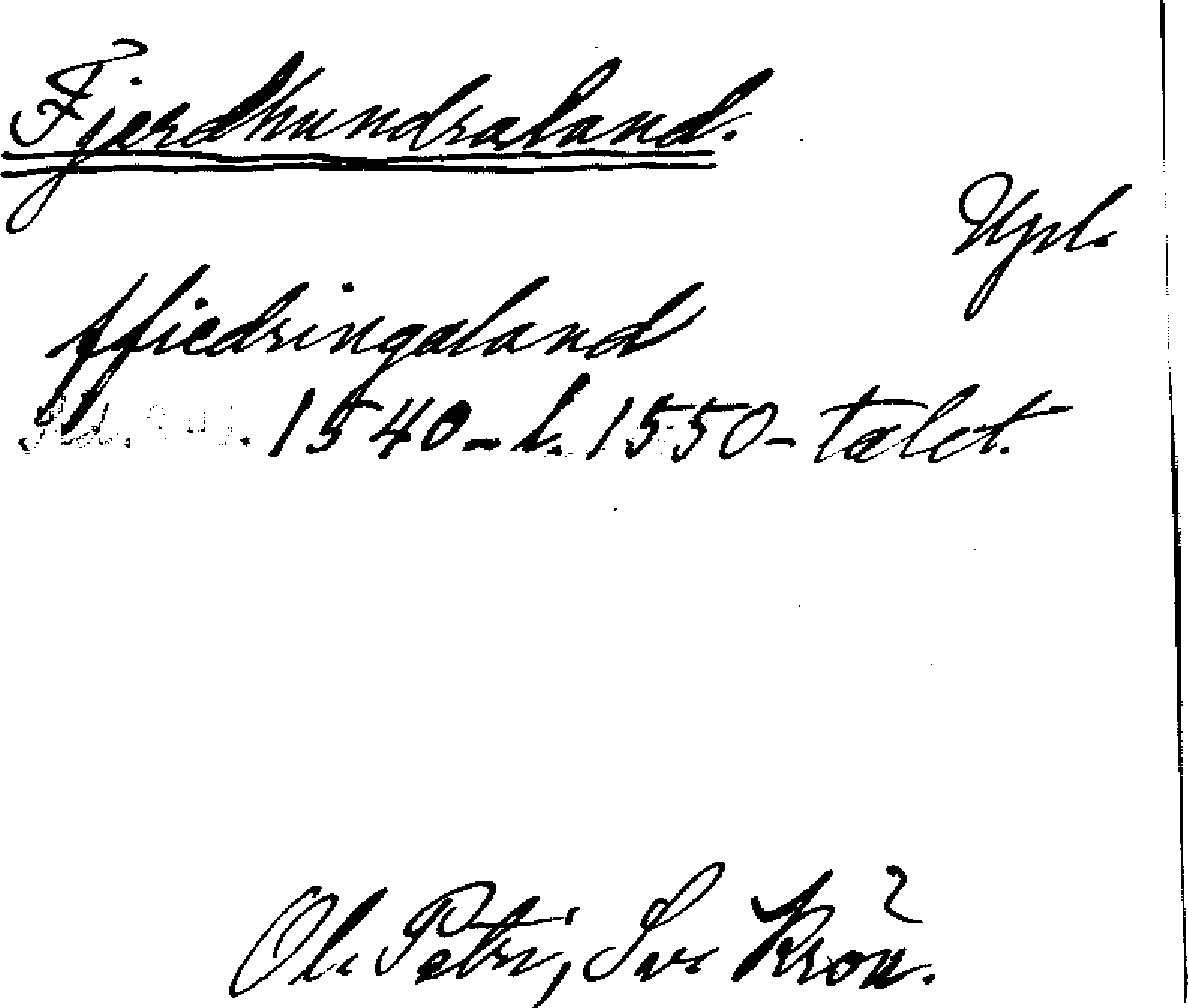 Fjerdhundraland.
Upl.
ffiedringaland
1540- l. 1550-talet.
Ol. Petri, Sv. Krön. 2